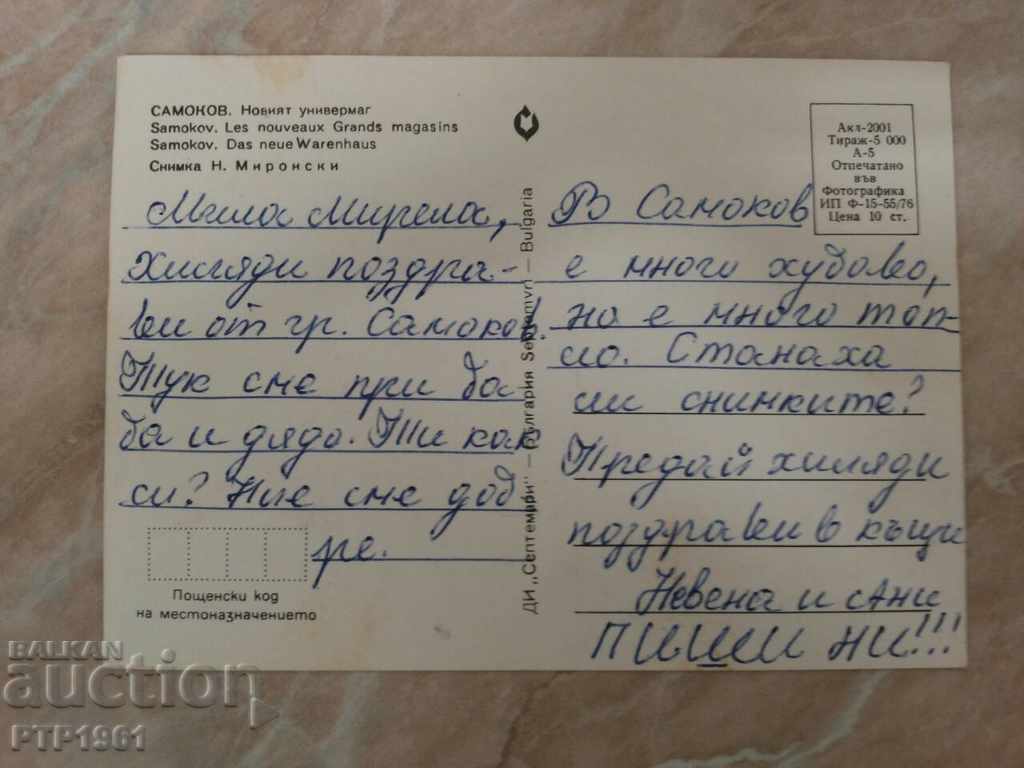 САМОКОВ. Новият универмаг
Samokov. Les nouveaux Grands magasins
Samokov. Das neue Warenhaus
Снимка Н. Миронски
Акл-2001
Тираж-5 000
А-5
Отпечатано
във
Фотографика
ИП Ф-15-55/76
Цена 10 ст.
Мила Мирела,
Хиляди поздра-
ви от гр. Самоков!
Тук сме при ба-
ба и дядо. Ти как
си? Ние сме доб
ре.
Пощенски код
на местоназначението
ДИ „Септември" — България Septemvri — Bulgaria
В Самоков
е много хубаво,
но е много топ-
ло. Станаха
ли снимките?
Предай хиляди
поздрави в къщи
Невена и Ани
ПИШИ НИ!!!
BALKAN
auction
PTP1961